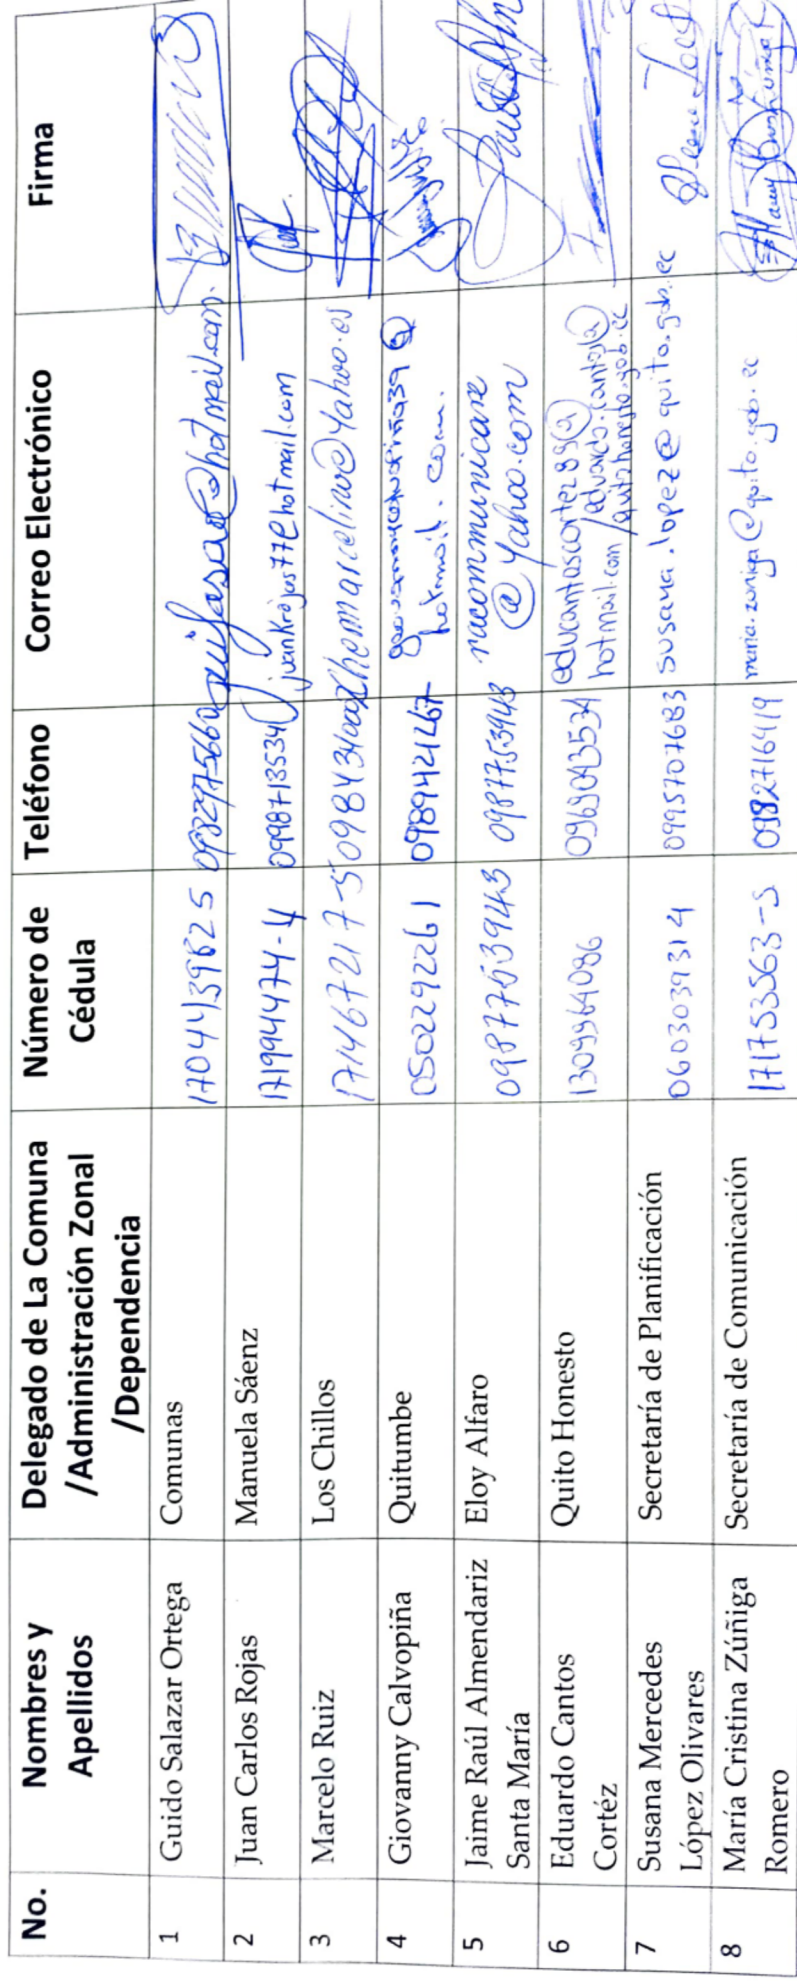 No. Nombres y Apellidos Delegado de La Comuna /Administración Zonal /Dependencia Número de Cédula Teléfono Correo Electrónico Firma
1 Guido Salazar Ortega Comunas 1704439825 0982975660
2 Juan Carlos Rojas Manuela Sáenz 171994474-4 0998713534 juankrojas77@hotmail.com
3 Marcelo Ruiz Los Chillos 171467217-5
4 Giovanny Calvopiña Quitumbe 0502292261 0989421267 hotmail.com.
5 Jaime Raúl Almendariz Santa María Eloy Alfaro 0987753943 0987753943 racommunicare @yahoo.com
6 Eduardo Cantos Cortéz Quito Honesto 1309964086 0969043534 educantoscortez89@ hotmail.com /eduardo.cantos@ quitohonesto.gob.ec
7 Susana Mercedes López Olivares Secretaría de Planificación 0603039314 0995707683 susana.lopez@quito.gob.ec
8 María Cristina Zúñiga Romero Secretaría de Comunicación 171753563-5 0982716419 maria.zuniga@quito.gob.ec